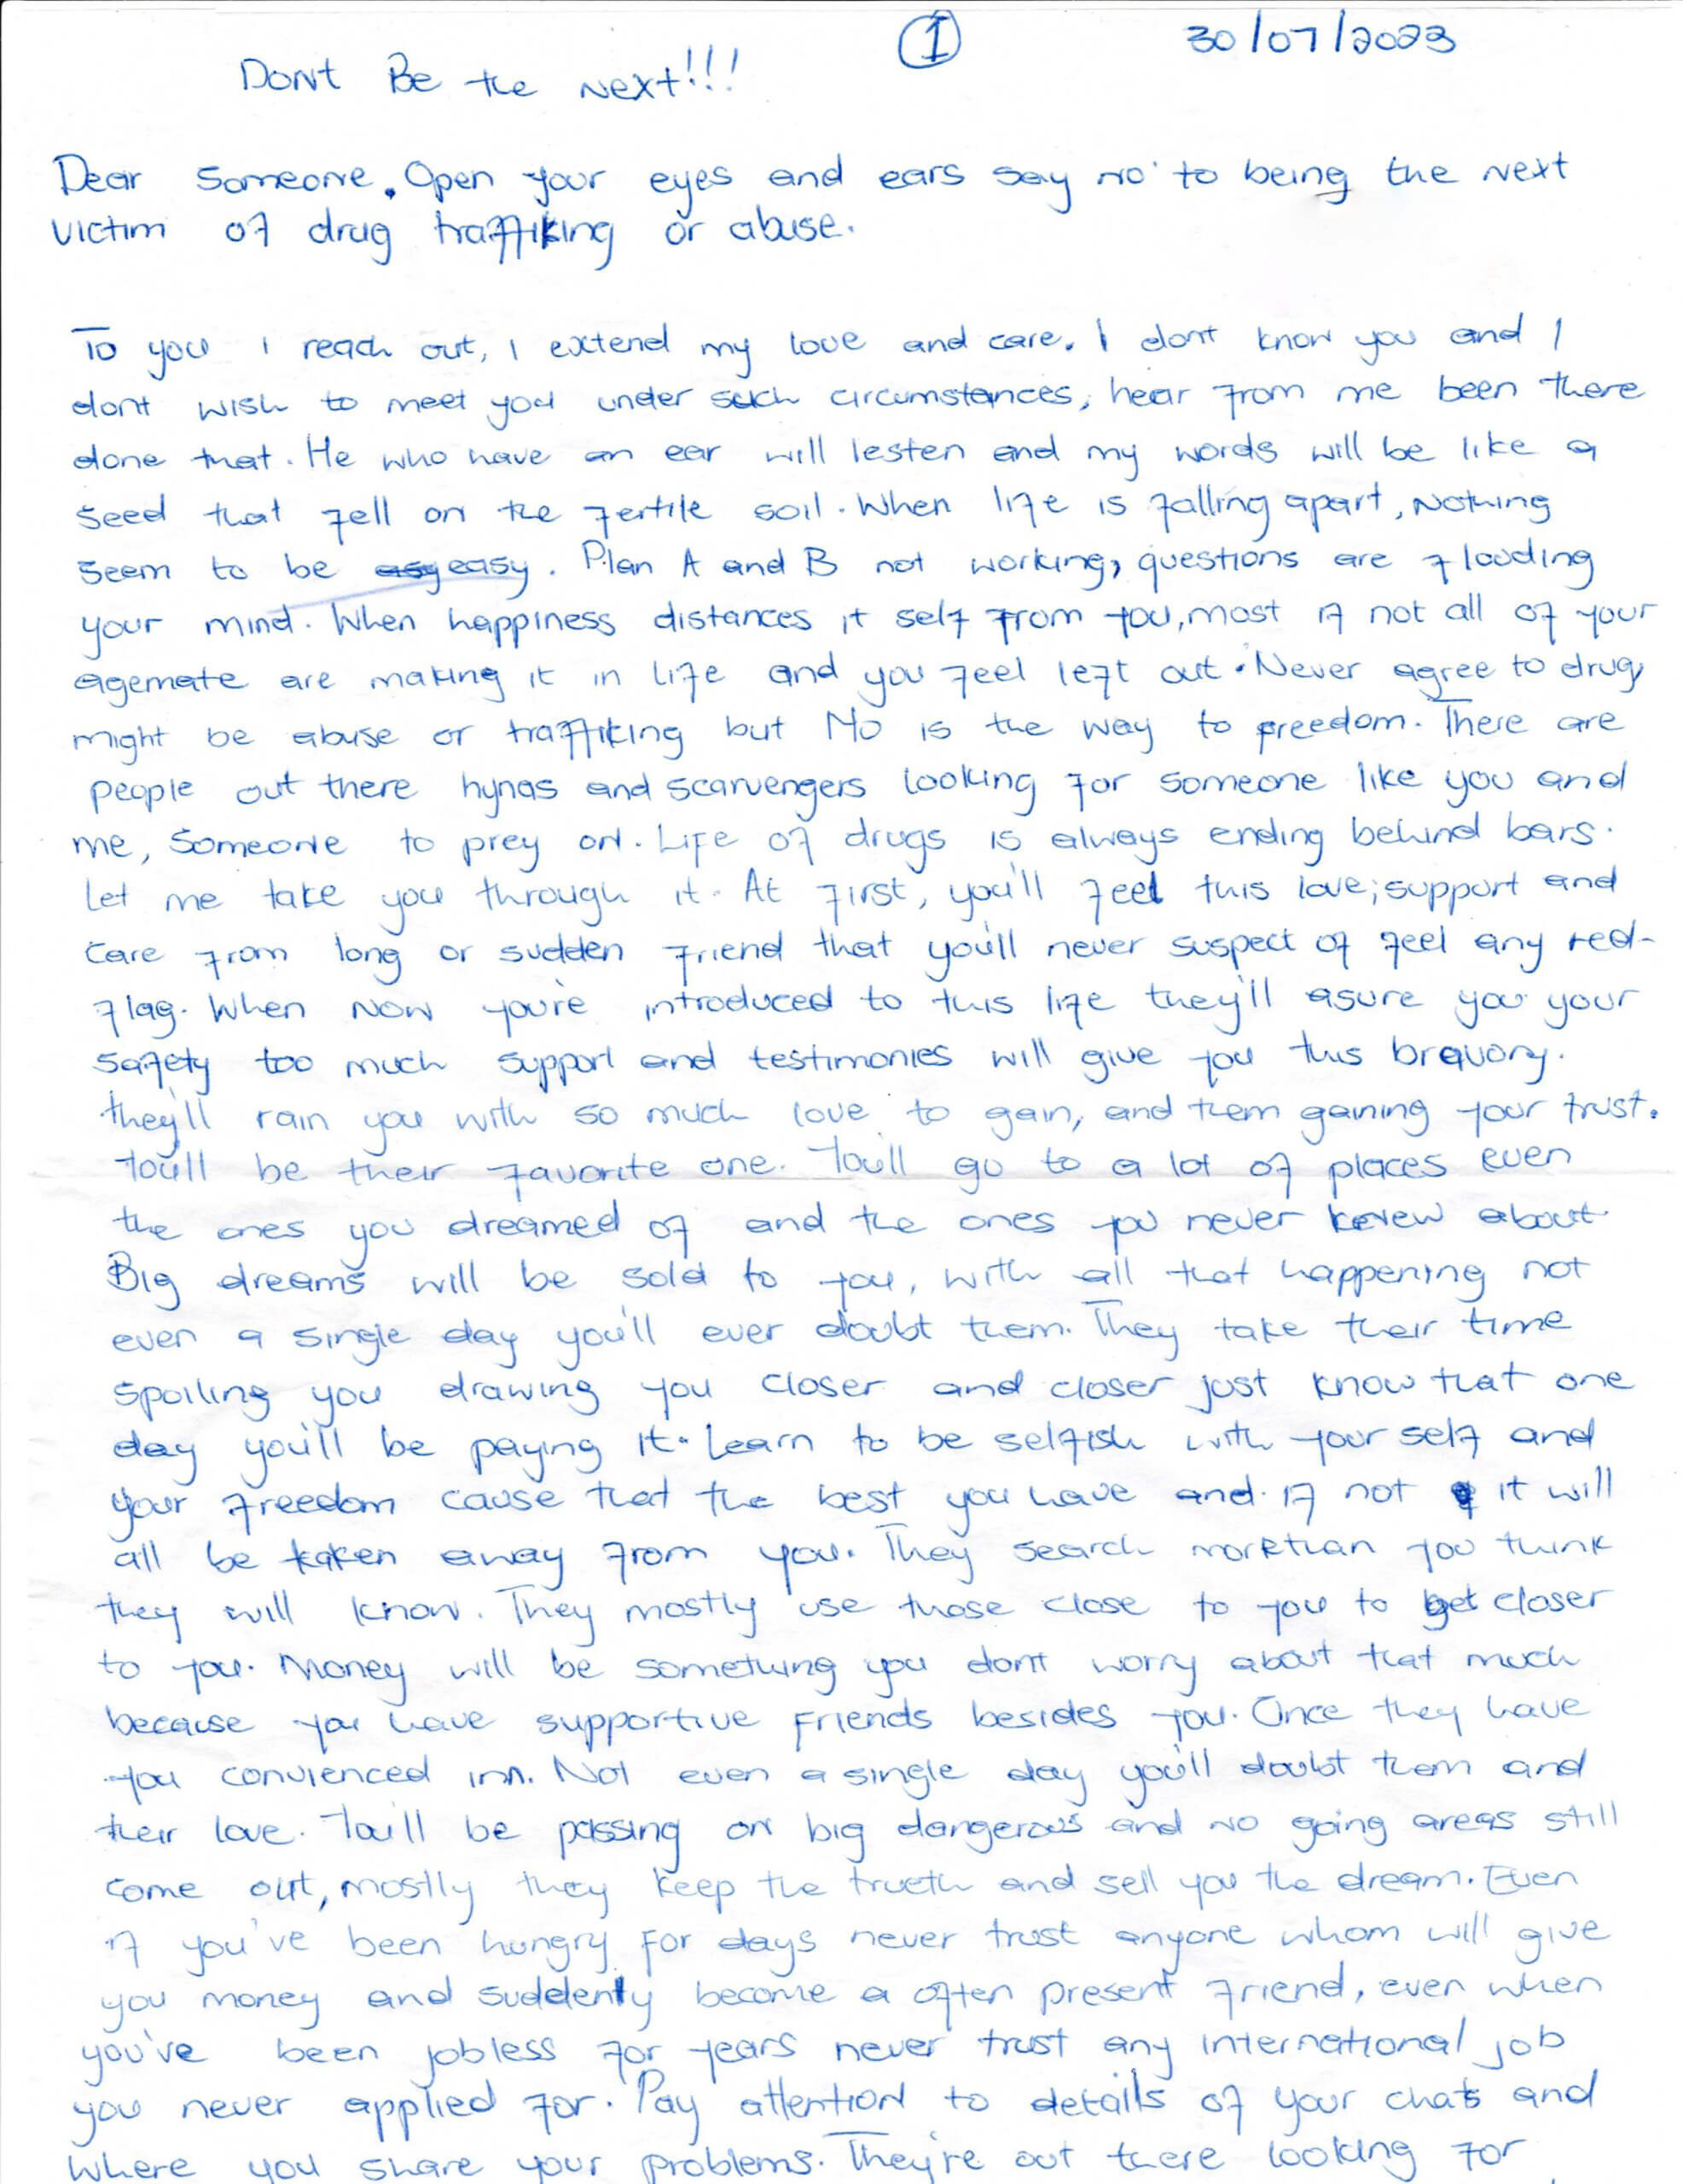 ① 30/07/2023
Dont Be the Next!!!
Dear Someone. Open your eyes and ears say no to being the next
victim of drug traffiking or abuse.
To you I reach out, I extend my love and care. I dont know you and I
dont wish to meet you under such circumstances, hear from me been there
done that. He who have an ear will lesten and my words will be like a
seed that fell on the fertile soil. When life is falling apart, Nothing
seem to be easy. Plan A and B not working, questions are flooding
your mind. When happiness distances it self from you, most if not all of your
agemate are making it in life and you feel left out. Never agree to drug,
might be abuse or traffiking but No is the way to freedom. There are
people out there hynas and scarvengers looking for someone like you and
me, Someone to prey on. Life of drugs is always ending behind bars.
Let me take you through it. At first, you'll feel this love, support and
care from long or sudden friend that you'll never suspect of feel any red-
flag. When now you're introduced to this life they'll asure you your
safety too much support and testimonies will give you this bravory.
they'll rain you with so much love to gain, and them gaining your trust.
You'll be their favorite one. You'll go to a lot of places even
the ones you dreamed of and the ones you never knew about.
Big dreams will be sold to you, with all that happening not
even a single day you'll ever doubt them. They take their time
spoiling you drawing you closer and closer just know that one
day you'll be paying it. Learn to be selfish with your self and
your freedom cause that the best you have and if not it will
all be taken away from you. They search morethan you think
they will know. They mostly use those close to you to get closer
to you. Money will be something you dont worry about that much
because you have supportive friends besides you. Once they have
you convienced inn. Not even a single day you'll doubt them and
their love. You'll be passing on big dangerous and no going areas still
come out, mostly they keep the trueth and sell you the dream. Even
if you've been hungry for days never trust anyone whom will give
you money and suddently become a often present friend, even when
you've been jobless for years never trust any international job
you never applied for. Pay attention to details of your chats and
where you share your problems. They're out there looking for